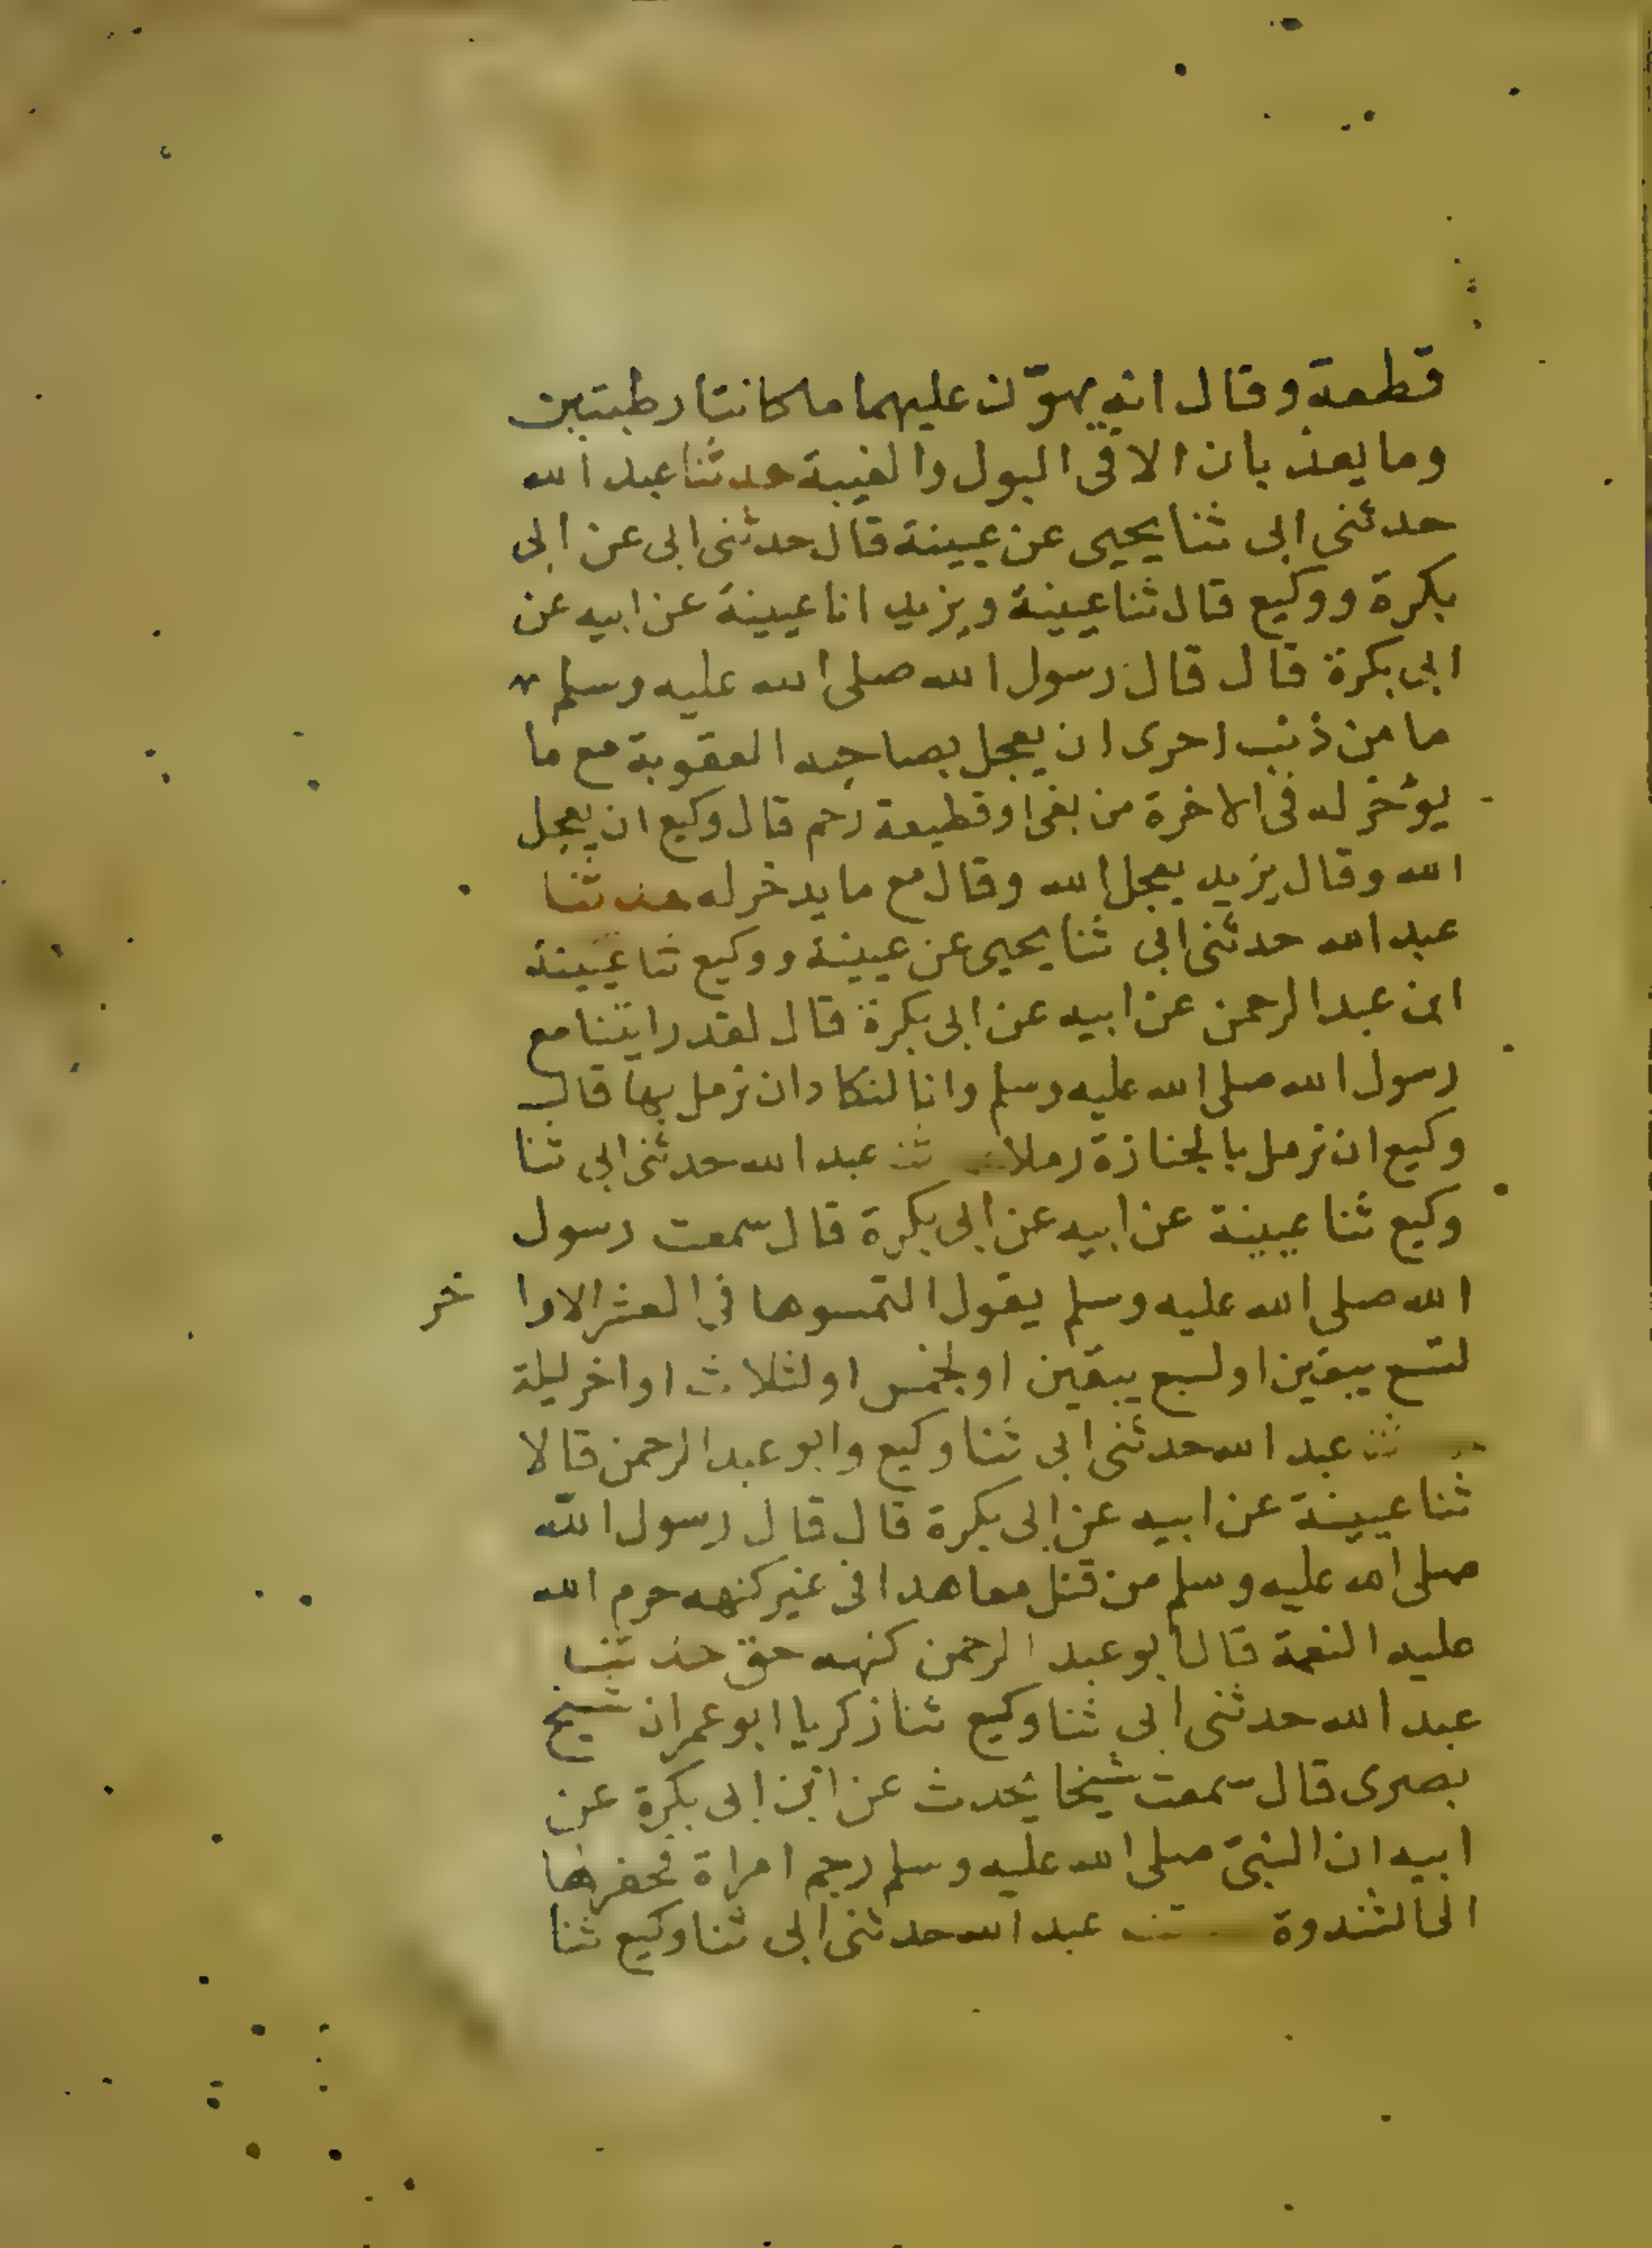 قطعة وقال انه يهوّن عليهما ما كانتا رطبتين
وما يعذبان الا فى البول والغيبة حدثنا عبد الله
حدثنى ابى ثنا يحيى عن عيينة قال حدثنى ابى عن ابى
بكرة ووكيع قال ثنا عيينة ويزيد انا عيينة عن ابيه عن
ابى بكرة قال قال رسول الله صلى الله عليه وسلم
ما من ذنب احرى ان يعجل بصاحبه العقوبة مع ما
يؤخر له فى الاخرة من بغى او قطيعة رحم قال وكيع ان يعجل
الله وقال يزيد يعجل الله وقال مع ما يدخر له حدثنا
عبد الله حدثنى ابى ثنا يحيى عن عيينة ووكيع ثنا عيينة
ابن عبد الرحمن عن ابيه عن ابى بكرة قال لقد رايتنا مع
رسول الله صلى الله عليه وسلم وانا لنكاد ان نرمل بها قال
وكيع ان نرمل بالجنازة رملا ثنا عبد الله حدثنى ابى ثنا
وكيع ثنا عيينة عن ابيه عن ابى بكرة قال سمعت رسول
الله صلى الله عليه وسلم يقول التمسوها فى العشر الاوا خر
لتسع يبقين او لسبع يبقين او لخمس او لثلاث او اخر ليلة
ثنا عبد الله حدثنى ابى ثنا وكيع وابو عبد الرحمن قالا
ثنا عيينة عن ابيه عن ابى بكرة قال قال رسول الله
صلى الله عليه وسلم من قتل معاهدا فى غير كنهه حرم الله
عليه النعمة قال ابو عبد الرحمن كنهه حق حدثنا
عبد الله حدثنى ابى ثنا وكيع ثنا زكريا ابو عمران شيخ
بصرى قال سمعت شيخا يحدث عن ابن ابى بكرة عن
ابيه ان النبىّ صلى الله عليه وسلم رجم امراة فحفر لها
الى الثندوة ثنا عبد الله حدثنى ابى ثنا وكيع ثنا